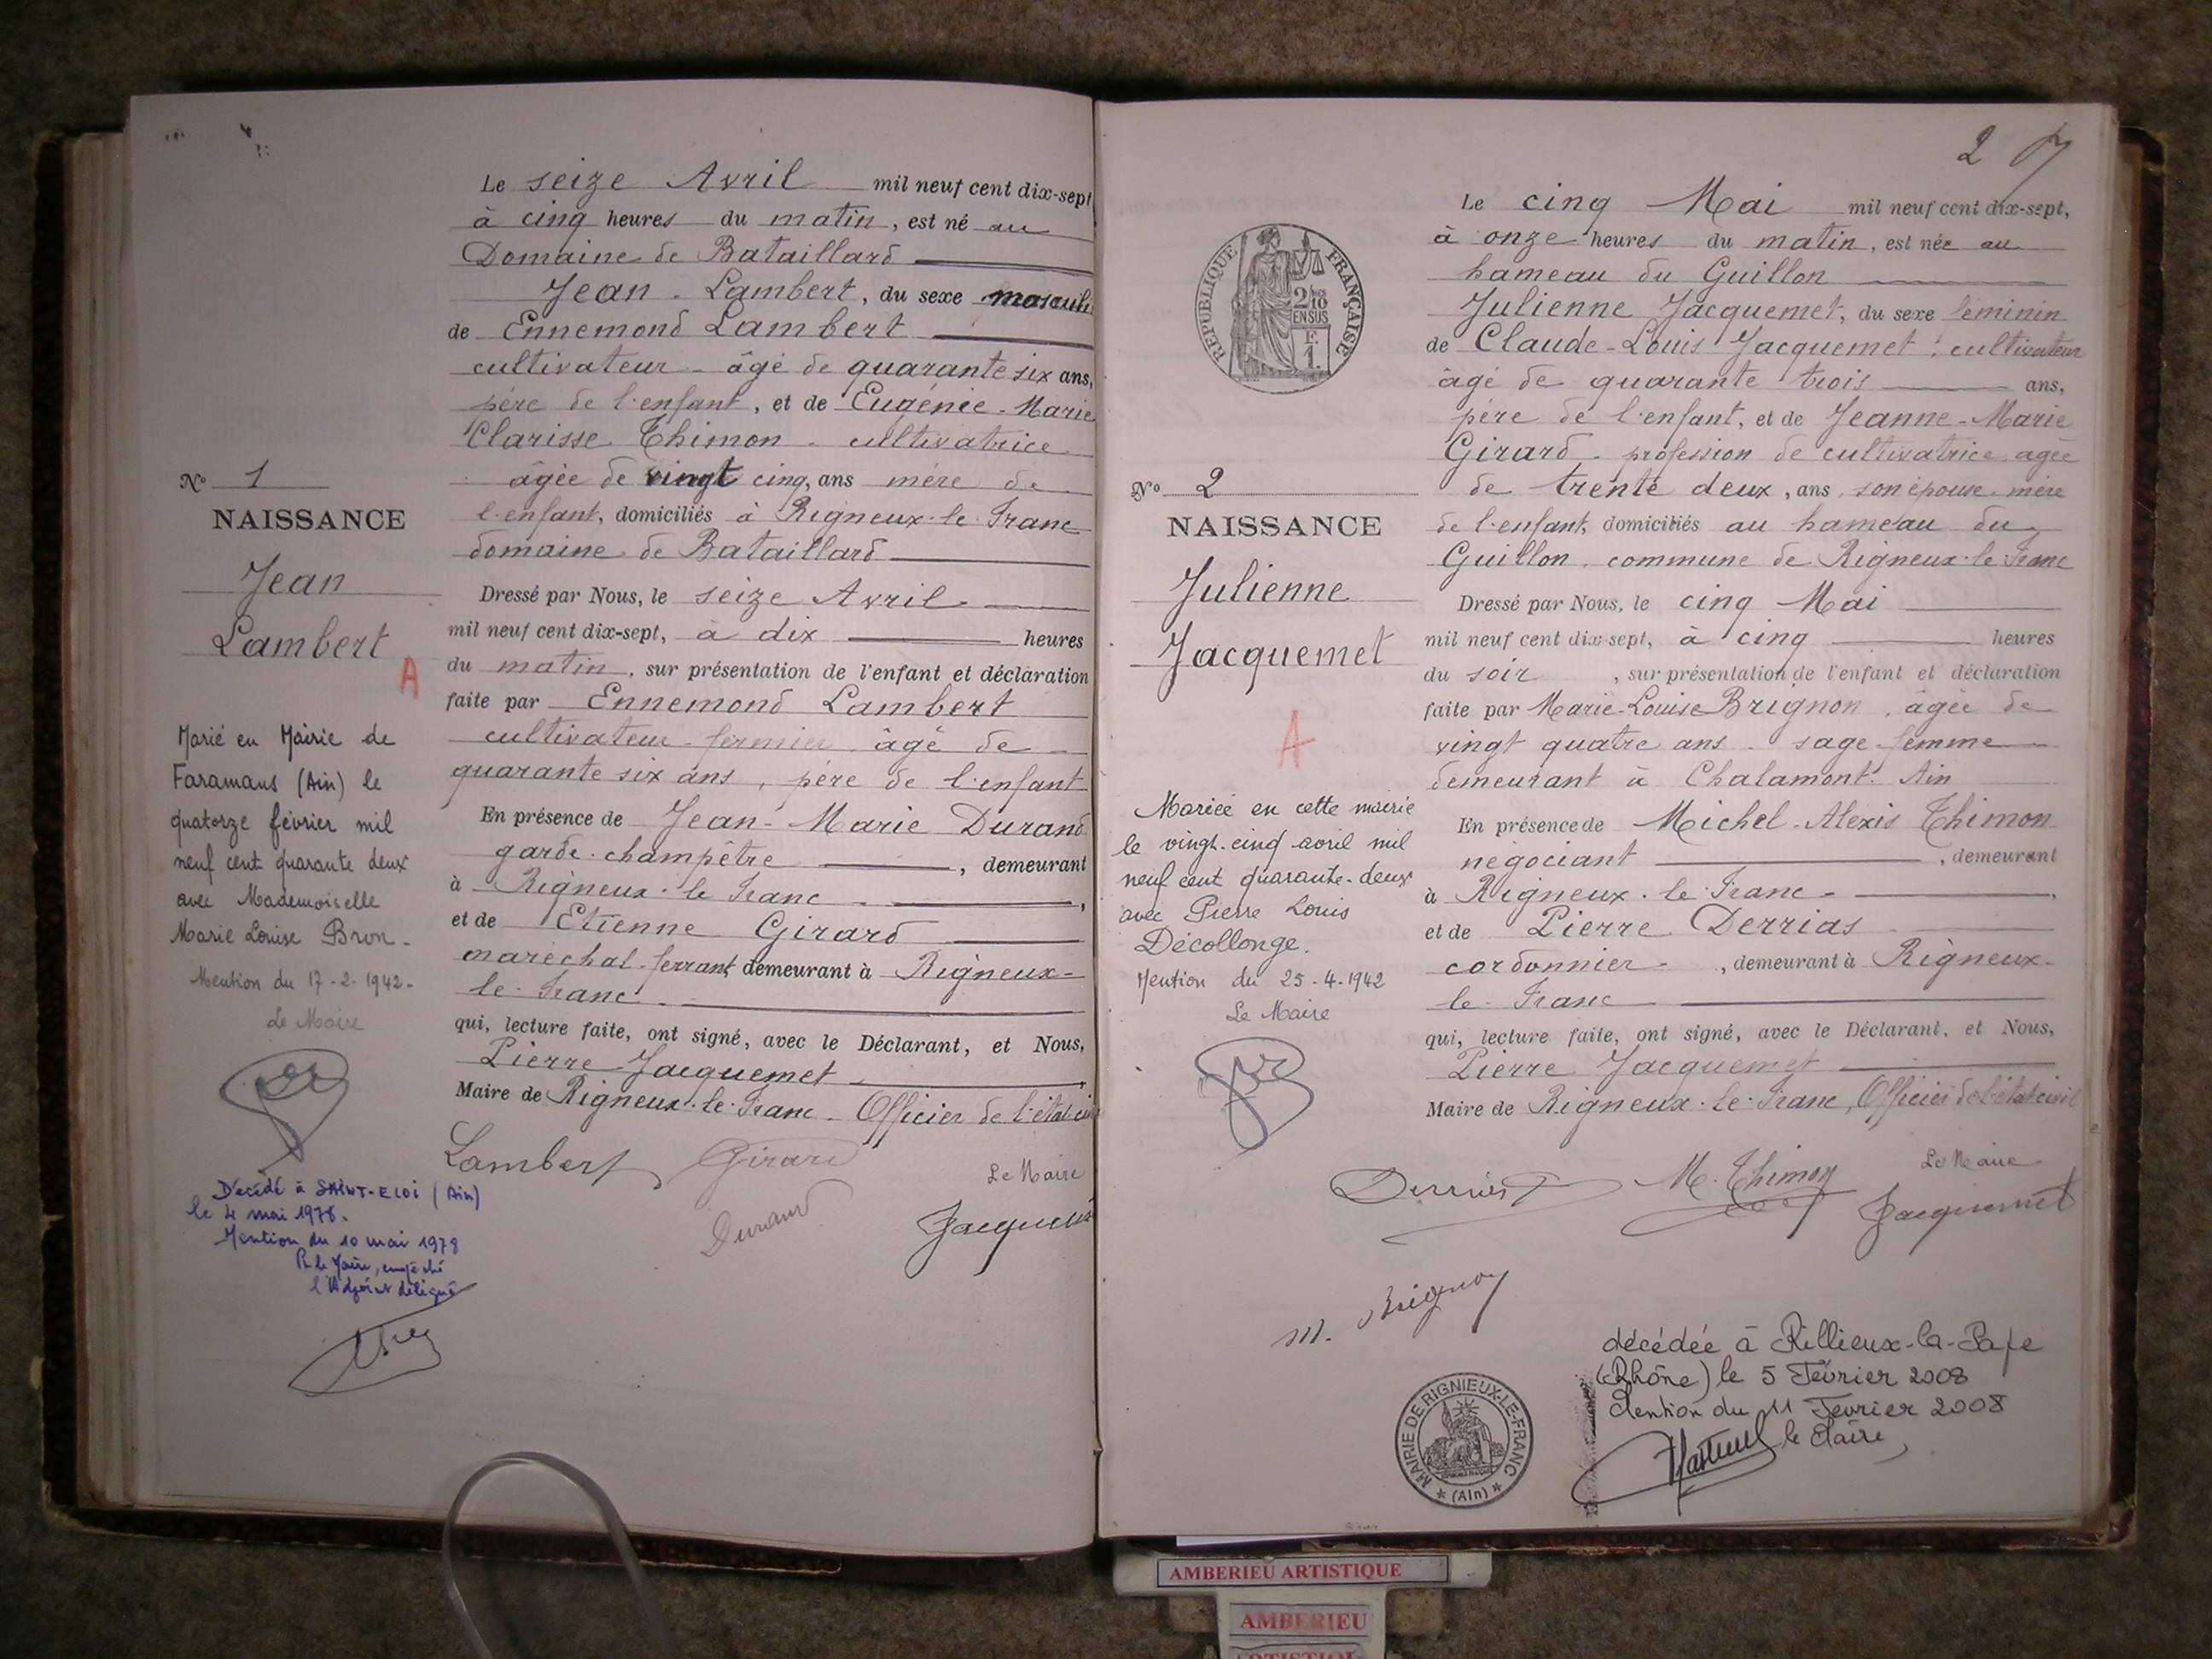 Le seize Avril mil neuf cent dix-sept
à cinq heures du matin, est né au
Domaine de Bataillard
Jean Lambert, du sexe masculi
de Ennemond Lambert
cultivateur âgé de quarante six ans,
père de l'enfant, et de Eugénie-Marie
Clarisse Thimon cultivatrice
âgée de vingt cinq, ans mère de
l'enfant, domiciliés à Rigneux-le-Franc
domaine de Bataillard
Dressé par Nous, le seize Avril
mil neuf cent dix-sept, à dix heures
du matin, sur présentation de l'enfant et déclaration
faite par Ennemond Lambert
cultivateur fermier âgé de
quarante six ans, père de l'enfant
En présence de Jean-Marie Durand
garde-champêtre, demeurant
à Rigneux-le-Franc,
et de Etienne Girard
maréchal-ferrant demeurant à Rigneux-
le-Franc
qui, lecture faite, ont signé, avec le Déclarant, et Nous,
Pierre Jacquemet,
Maire de Rigneux-le-Franc Officier de l'état-civ
Lambert Girard
Le Maire
Durand
Jacquem
No 1
NAISSANCE
Jean
Lambert
A
Marié en Mairie de
Faramans (Ain) le
quatorze février mil
neuf cent quarante deux
avec Mademoiselle
Marie Louise Bron-
Mention du 17-2-1942-
Le Maire
Décédé à SAINT-ELOI (Ain)
le 4 mai 1978.
Mention du 10 mai 1978
P. le Maire, empêché
l'Adjoint délégué
2
Le cinq Mai mil neuf cent dix-sept,
à onze heures du matin, est née au
hameau du Guillon
Julienne Jacquemet, du sexe féminin
de Claude-Louis Jacquemet, cultivateur
âgé de quarante trois ans,
père de l'enfant, et de Jeanne-Marie
Girard profession de cultivatrice agée
de trente deux, ans, son épouse mère
de l'enfant, domiciliés au hameau du
Guillon, commune de Rigneux-le-Franc
Dressé par Nous, le cinq Mai
mil neuf cent dix-sept, à cinq heures
du soir, sur présentation de l'enfant et déclaration
faite par Marie-Louise Brignon, âgée de
vingt quatre ans sage-femme
demeurant à Chalamont Ain
En présence de Michel-Alexis Thimon
négociant, demeurant
à Rigneux-le-Franc,
et de Pierre Derrias
cordonnier, demeurant à Rigneux-
le-Franc
qui, lecture faite, ont signé, avec le Déclarant, et Nous,
Pierre Jacquemet
Maire de Rigneux-le-Franc, Officier de l'état civil
Derrias M. Thimon
Le Maire
Jacquemet
M. Brignon
RÉPUBLIQUE FRANÇAISE
2/10
EN SUS
F.
1.
No 2
NAISSANCE
Julienne
Jacquemet
A
Mariée en cette mairie
le vingt-cinq avril mil
neuf cent quarante-deux
avec Pierre Louis
Décollonge.
Mention du 25-4-1942
Le Maire
décédée à Rillieux-la-Pape
(Rhône) le 5 Février 2008
Mention du 11 Février 2008
le Maire,
MAIRIE DE RIGNIEUX-LE-FRANC
* (Ain) *
AMBERIEU ARTISTIQUE
AMBERIEU
ARTISTIQUE